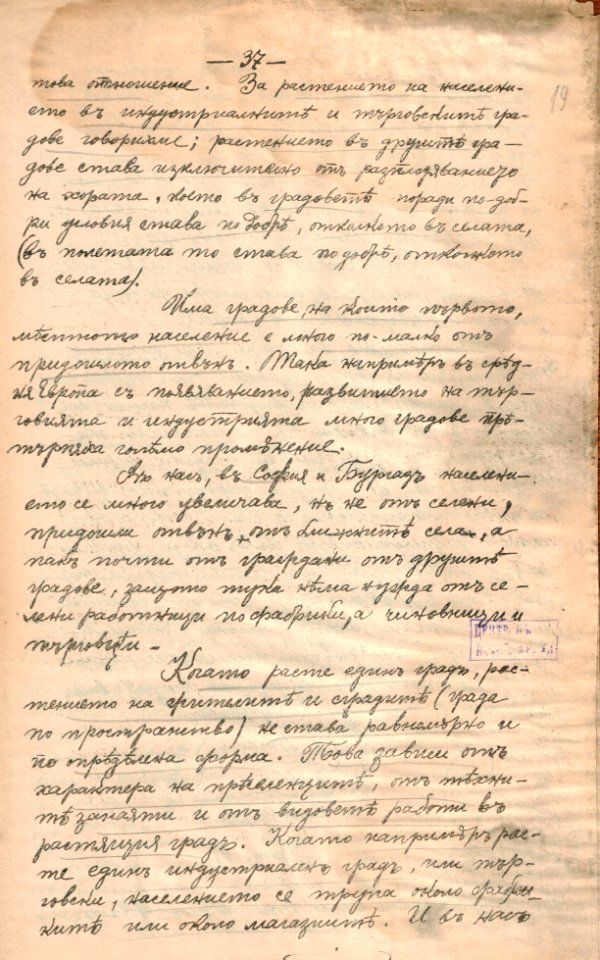 — 37 —
19
това отношение. За растението на населени-
ето въ индустриалнитѣ и търговскитѣ гра-
дове говорихме; растението въ другитѣ гра-
дове става изключително отъ разплодяванието
на хората, което въ градоветѣ поради по-доб-
ри условия става по добрѣ, отколкото въ селата,
(въ полетата то става по добрѣ, отколкото
въ селата).
Има градове, на които първото,
мѣстното население е много по-малко отъ
придошлото отвънъ. Така напримѣръ въ срѣд-
ня Европа съ появяванието, развитието на тър-
говията и индустрията много градове прѣ-
търпяха голѣмо промѣнение.
У насъ, въ София и Бургазъ населени-
ето се много увеличава, нъ не отъ селени,
придошли отвънъ, отъ ближнитѣ села, а
пакъ почти отъ граждани отъ другитѣ
градове, защото тука нѣма нужда отъ се-
лени работници по фабрики, а чиновници и
търговци.
Когато расте единъ градъ, рас-
тението на жителитѣ и сградитѣ (града
по пространство) не става равномѣрно и
по опрѣдѣлена форма. Това зависи отъ
характера на прѣселенцитѣ, отъ тѣхни-
тѣ занаяти и отъ видоветѣ работи въ
растящия градъ. Когато напримѣръ рас-
те единъ индустриаленъ градъ, или тър-
говски, населението се трупа около фабри-
китѣ или около магазиитѣ. И въ насъ